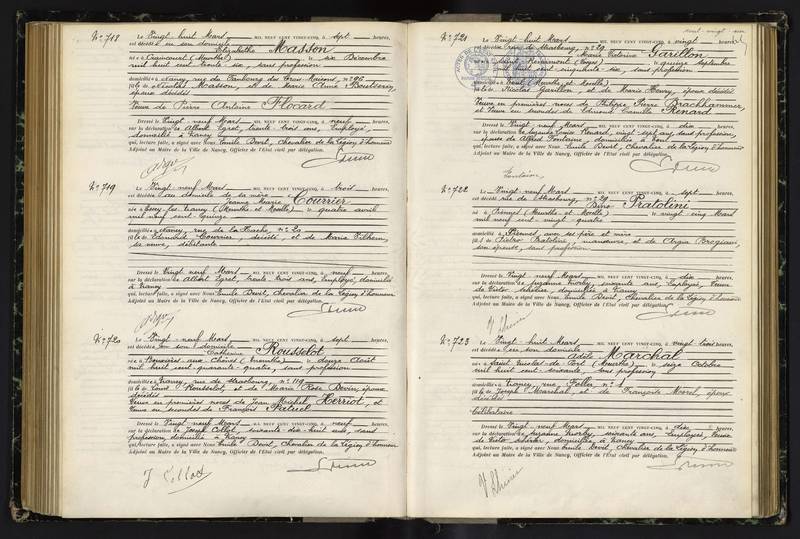 N° 718
Le Vingt-huit Mars MIL NEUF CENT VINGT-CINQ, à sept heures,
est décédée en son domicile
Elisabethe Masson
née à Craincourt (Meurthe) le six Décembre
mil huit cent quarante six, sans profession
domiciliée à Nancy, rue du Faubourg des Trois-Maisons, n° 96
fille de Nicolas Masson, et de Marie Anne
époux décédés
Veuve de Pierre Antoine Flocard
Dressé le Vingt-neuf Mars MIL NEUF CENT VINGT-CINQ, à neuf heures,
sur la déclaration de Albert Egret, trente-trois ans, employé,
domicilié à Nancy
qui, lecture faite, a signé avec Nous Emile Devit, Chevalier de la Légion d'honneur
Adjoint au Maire de la Ville de Nancy, Officier de l'État civil par délégation.
N° 719
Le Vingt-neuf Mars MIL NEUF CENT VINGT-CINQ, à trois heures,
est décédé au domicile de sa mère
Jeanne Marie Courrier
née à Essey-les-Nancy (Meurthe et Moselle) le quatre avril
mil neuf cent quinze
domiciliée à Nancy, rue de la n° 20
fille de Edmond Courrier, décédé, et de Marie
sa veuve, débitante
Dressé le Vingt-neuf Mars MIL NEUF CENT VINGT-CINQ, à neuf heures,
sur la déclaration de Albert Egret, trente trois ans, employé, domicilié
à Nancy
qui, lecture faite, a signé avec Nous Emile Devit, Chevalier de la Légion d'honneur
Adjoint au Maire de la Ville de Nancy, Officier de l'État civil par délégation.
N° 720
Le Vingt-neuf Mars MIL NEUF CENT VINGT-CINQ, à sept heures,
est décédée en son domicile
Catherine Rousselot
née à aux Chênes (Meurthe) le douze Août
mil huit cent-quarante-quatre, sans profession
domiciliée à Nancy, rue de Strasbourg, n° 119
fille de Louis Rousselot et de Marie Rose Bevin, époux
décédés
Veuve en premières noces de Jean Michel Herriot, et
Veuve en secondes de François Patuel
Dressé le Vingt-neuf Mars MIL NEUF CENT VINGT-CINQ, à neuf heures,
sur la déclaration de Joseph Collot, soixante-dix-huit ans, sans
profession, domicilié à Nancy
qui, lecture faite, a signé avec Nous Emile Devit, Chevalier de la Légion d'honneur
Adjoint au Maire de la Ville de Nancy, Officier de l'État civil par délégation.
J Collot
N° 721
Le Vingt-huit Mars MIL NEUF CENT VINGT-CINQ, à vingt heures,
est décédée rue de Strasbourg, n° 29
Marie Victorine Garillon
née à Remiremont (Vosges) le quinze Septembre
mil huit cent cinquante six, sans profession
domiciliée à Toul (Meurthe et Moselle)
fille de Nicolas Garillon, et de Marie Henry, époux décédés
Veuve en premières noces de Philippe Pierre Brachhammer,
et Veuve en secondes de Edmond Camille Renard
Dressé le Vingt-neuf Mars MIL NEUF CENT VINGT-CINQ, à dix heures,
sur la déclaration de Louise Renard, vingt sept ans, sans profession,
épouse de Alfred Fontaine, domiciliée à Toul
qui, lecture faite, a signé avec Nous Emile Devit, Chevalier de la Légion d'honneur
Adjoint au Maire de la Ville de Nancy, Officier de l'État civil par délégation.
Fontaine
N° 722
Le Vingt-neuf Mars MIL NEUF CENT VINGT-CINQ, à sept heures,
est décédé rue de Strasbourg, n° 29
Dino Pratolini
né à Piennes (Meurthe et Moselle) le vingt cinq Mars
mil neuf cent vingt-quatre
domicilié à Piennes, avec ses père et mère
fils de Pietro Pratolini, manœuvre, et de Argia Bregianni,
son épouse, sans profession
Dressé le Vingt-neuf Mars MIL NEUF CENT VINGT-CINQ, à dix heures,
sur la déclaration de Suzanne soixante ans, employée, Veuve
de Victor domiciliée à Nancy
qui, lecture faite, a signé avec Nous Emile Devit, Chevalier de la Légion d'honneur
Adjoint au Maire de la Ville de Nancy, Officier de l'État civil par délégation.
N° 723
Le Vingt-huit Mars MIL NEUF CENT VINGT-CINQ, à vingt trois heures,
est décédée en son domicile
Adèle Marchal
née à Saint Nicolas de Port (Meurthe) le seize Octobre
mil huit cent-soixante, sans profession
domiciliée à Nancy, rue Sellier n° 1
fille de Joseph Marchal, et de Françoise Morel, époux
décédés
Célibataire
Dressé le Vingt-neuf Mars MIL NEUF CENT VINGT-CINQ, à dix heures,
sur la déclaration de Suzanne soixante ans, employée, Veuve
de Victor domiciliée à Nancy
qui, lecture faite, a signé avec Nous Emile Devit, Chevalier de la Légion d'honneur
Adjoint au Maire de la Ville de Nancy, Officier de l'État civil par délégation.